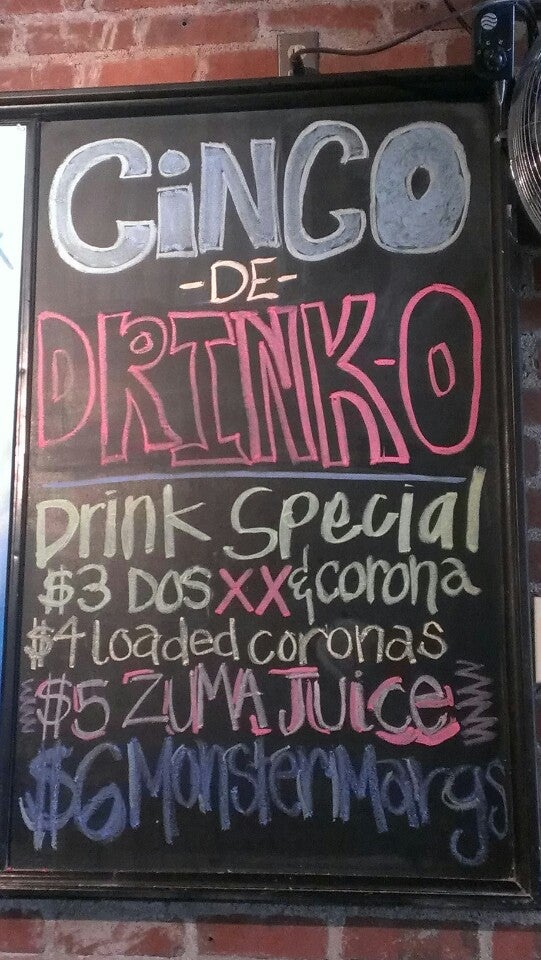 CiNCO
-DE-
DRINK-O
Drink Special
$3 DOS XX & corona
$4 loaded coronas
$5 ZUMA Juice
$6 Monster Margs